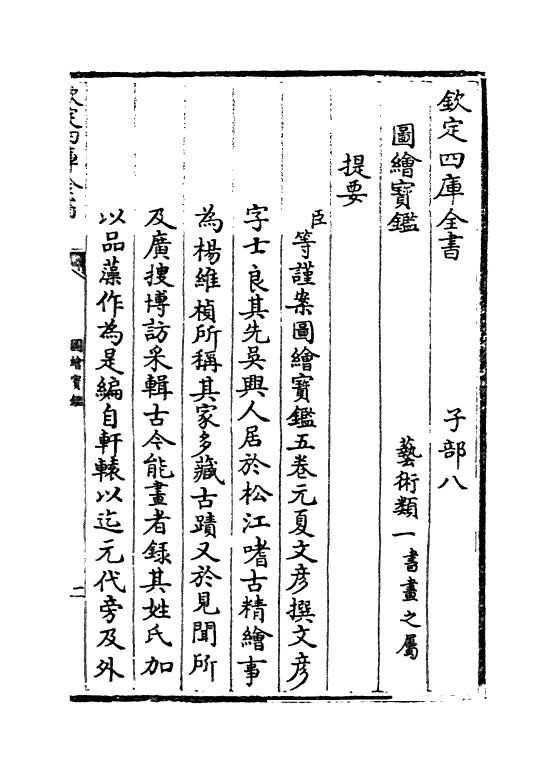 欽定四庫全書　子部八
圖繪寶鑑　藝術類一書畫之屬
提要
臣等謹案圖繪寶鑑五卷元夏文彦撰文彦
字士良其先吳興人居於松江嗜古精繪事
為楊維楨所稱其家多藏古蹟又於見聞所
及廣搜博訪采輯古今能畫者録其姓氏加
以品藻作為是編自軒轅以迄元代旁及外
欽定四庫全書
圖繪寶鑑
二